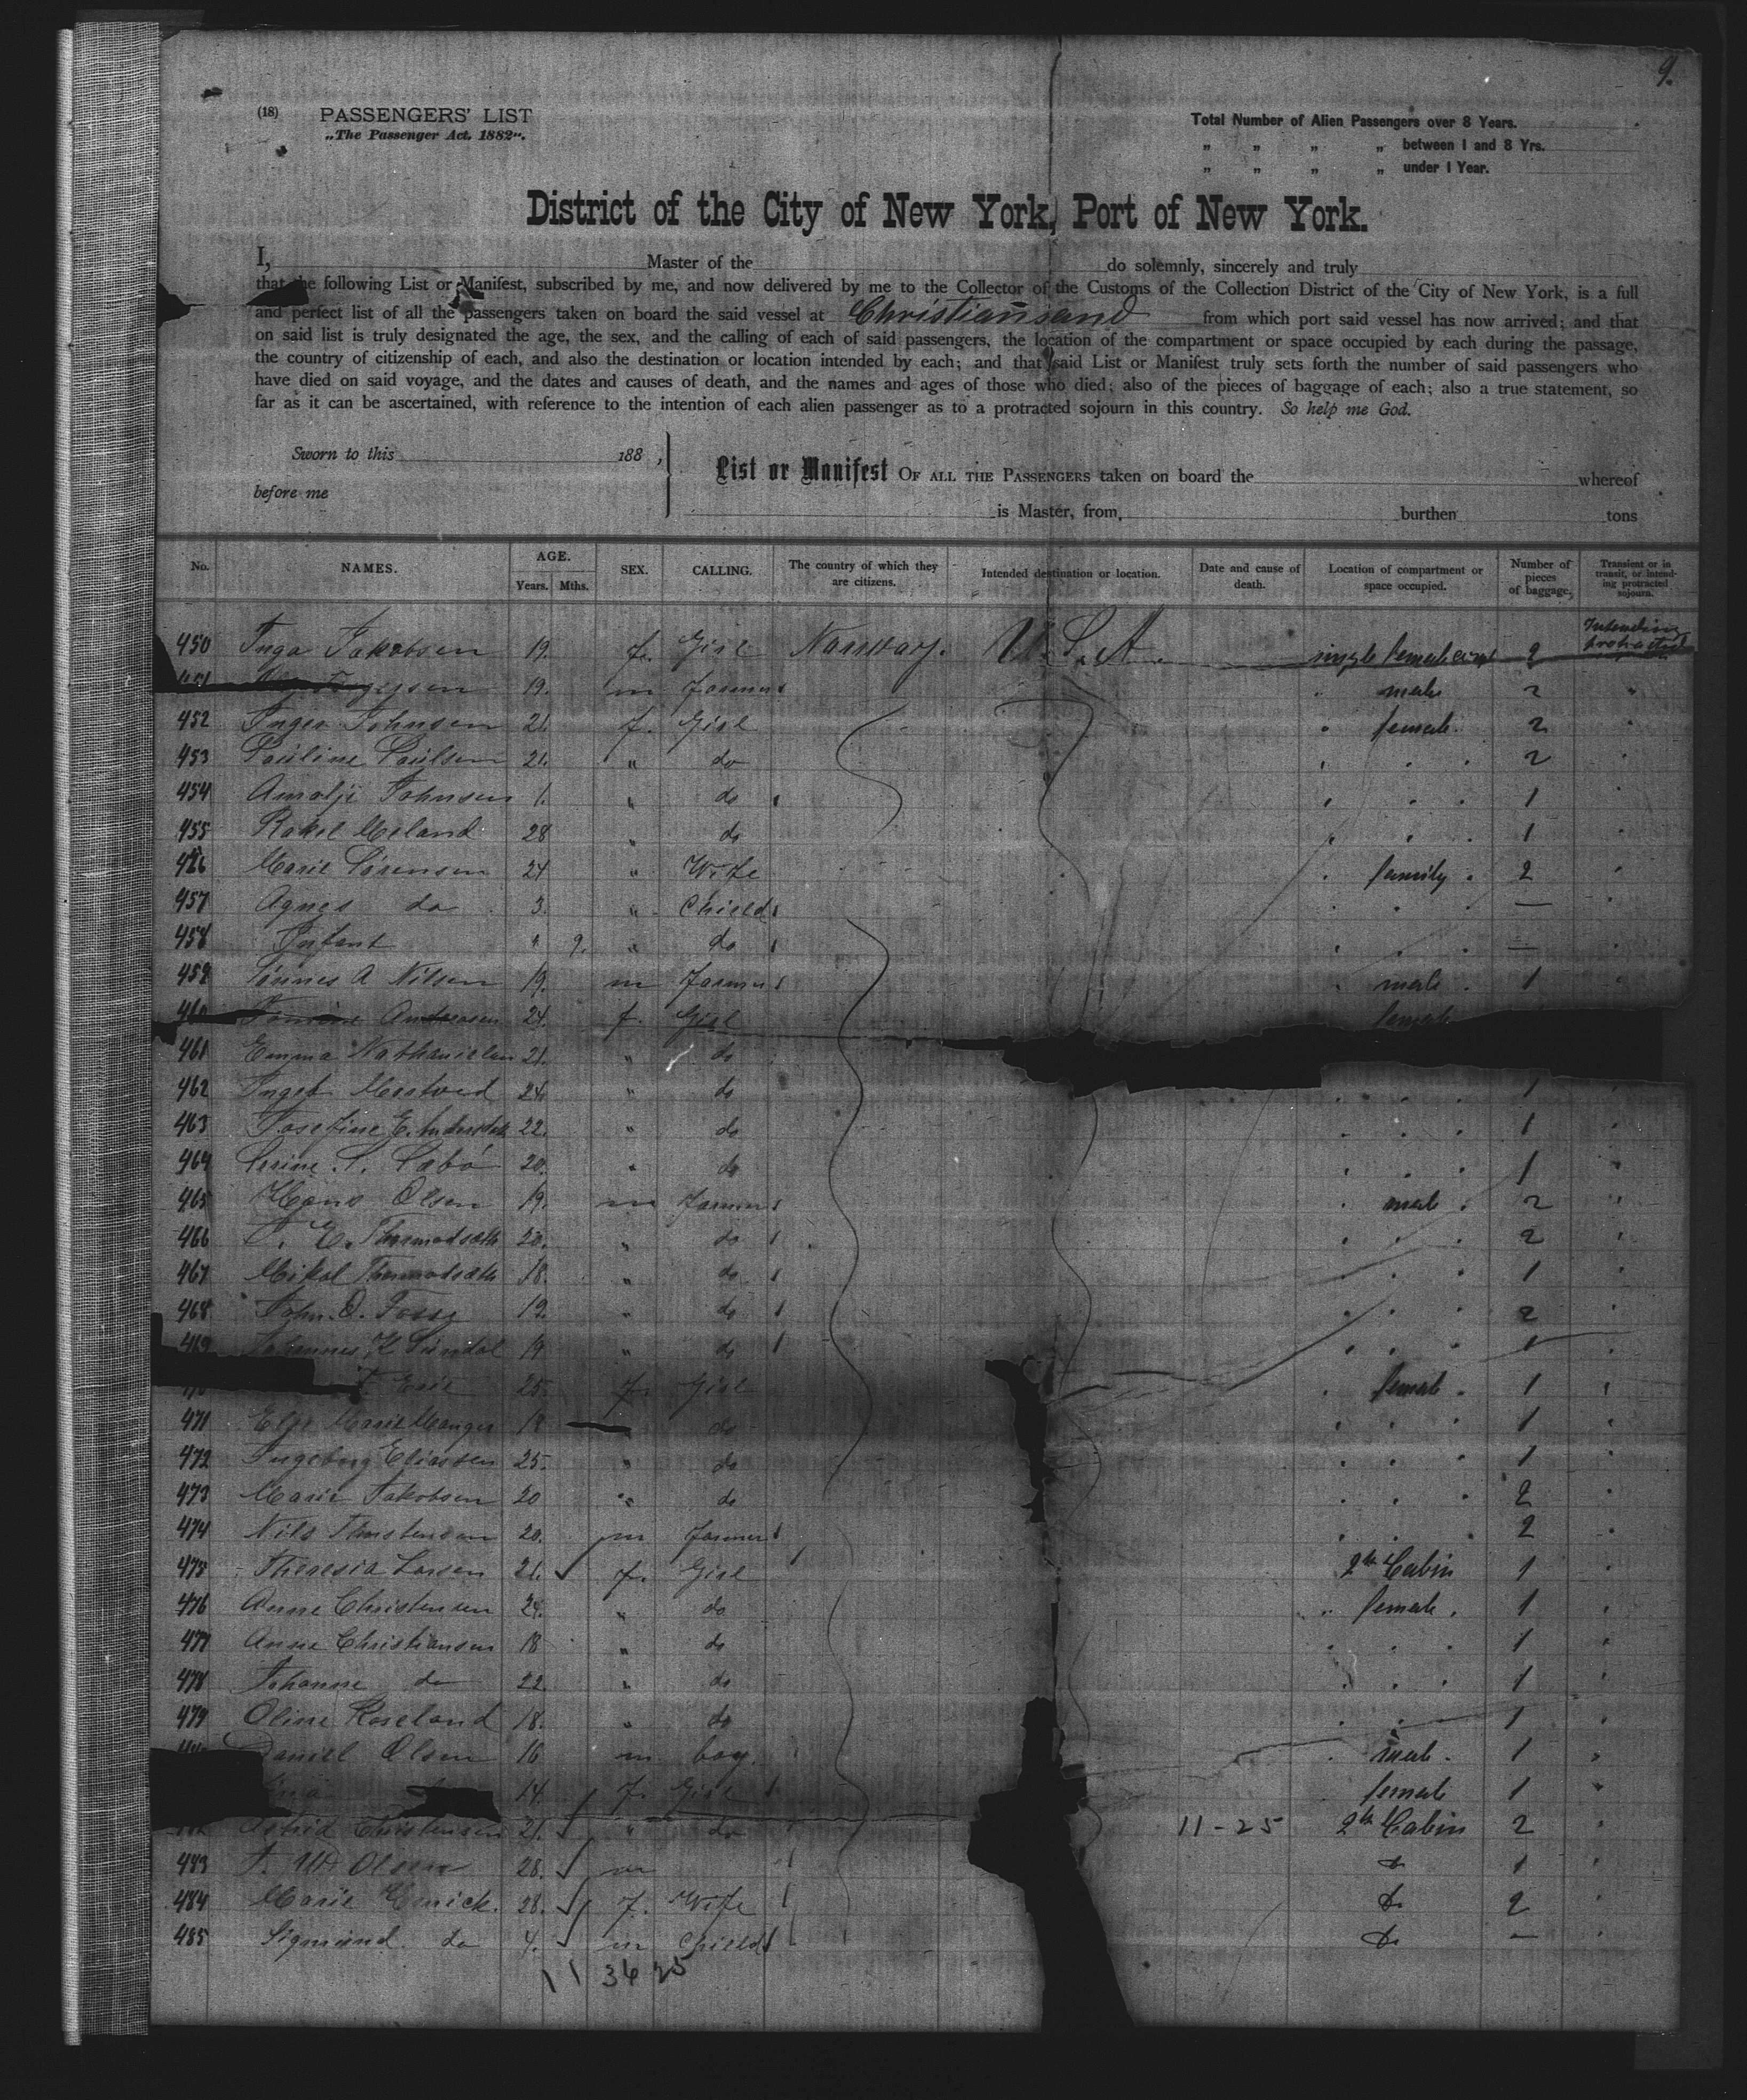 9.
(18) PASSENGERS' LIST
„The Passenger Act. 1882“.
Total Number of Alien Passengers over 8 Years.
„ „ „ „ between 1 and 8 Yrs.
„ „ „ „ under 1 Year.
District of the City of New York, Port of New York.
I, Master of the do solemnly, sincerely and truly
that the following List or Manifest, subscribed by me, and now delivered by me to the Collector of the Customs of the Collection District of the City of New York, is a full
and perfect list of all the passengers taken on board the said vessel at Christiansand from which port said vessel has now arrived; and that
on said list is truly designated the age, the sex, and the calling of each of said passengers, the location of the compartment or space occupied by each during the passage,
the country of citizenship of each, and also the destination or location intended by each; and that said List or Manifest truly sets forth the number of said passengers who
have died on said voyage, and the dates and causes of death, and the names and ages of those who died; also of the pieces of baggage of each; also a true statement, so
far as it can be ascertained, with reference to the intention of each alien passenger as to a protracted sojourn in this country. So help me God.
Sworn to this 188 ,
before me
List or Manifest OF ALL THE PASSENGERS taken on board the whereof
is Master, from, burthen tons
No. NAMES. AGE. Years. Mths. SEX. CALLING. The country of which they are citizens. Intended destination or location. Date and cause of death. Location of compartment or space occupied. Number of pieces of baggage. Transient or in transit, or intending protracted sojourn.
450 Inga Jakobsen 19. f. Girl Norway. U.S.A. single female 2 Intending protracted
19. m farmer " male 2 "
452 Inger Johnsen 21. f. Girl " female. 2 "
453 Pauline Paulsen 21. " do 2 "
454 Johnsen 1. " do 1 "
455 Rakel Meland 28 " do 1 "
456 Marie Sörensen 24 " Wife family 2 "
457 Agnes do 3. " Child —
458 Infant " 9. " do —
459 Tönnes A Nilsen 19. m farmer male 1
460 Andreasen 24. f. Girl female
461 Emma 21. " do
462 24. " do 1
463 Josefine E. 22. " do 1
464 20. " do 1
465 Hans Olsen 19. m farmer male 2
466 20. " do 2
467 Mikal 18. " do 1
468 John. O. Fossy 19. " do 2
469 Johannes K 19 " do 1
25. f. Girl female 1
471 Marie 18 do 1
472 Ingeborg Eliassen 25. " do 1
473 Marie Jakobsen 20 " do 2
474 Nils 20. m farmer 2
475 Theresia Larsen 21. f. Girl 2th Cabin 1
476 Anne Christensen 24. " do female. 1
477 Anna Christiansen 18 " do 1
478 Johanne do 22 " do 1
479 Oline Roseland 18. " do 1
Daniel Olsen 16 m. boy. male. 1
14. f. Girl female 1
Astrid Christensen 21. " do 11-25 2th Cabin 2
483 Olsen 28. m do 1
484 Marie 28. f. Wife do 2
485 Sigmund do 4. m Child do —
11 36 25